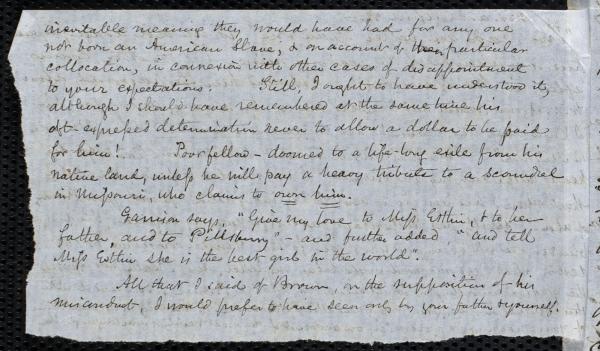 inevitable meaning they would have had for any one
not born an American Slave, & on account of their particular
collocation, in connexion with other cases of disappointment
to your expectations. Still, I ought to have understood it,
although I should have remembered at the same time his
oft-expressed determination never to allow a dollar to be paid
for him! Poor fellow - doomed to a life-long exile from his
native land, unless he will pay a heavy tribute to a scoundrel
in Missouri, who claims to own him.
Garrison says, "Give my love to Miss Estlin, & to her
father, and to Pillsbury" - and further added, "and tell
Miss Estlin she is the best girl in the world".
All that I said of Brown, on the supposition of his
misconduct, I would prefer to have seen only by your father & yourself.